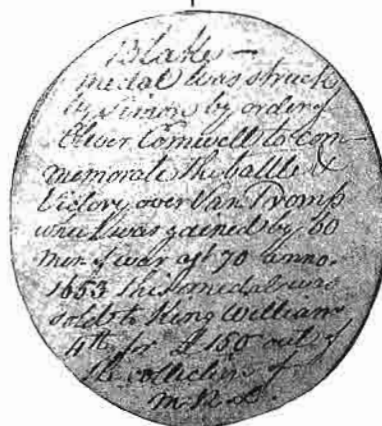 Blake —
medal was struck
by Simon by order of
Oliver Cromwell to com-
memorate the battle &
Victory over Van Tromp
which was gained by 60
men of war agt 70 anno.
1653 this medal was
sold to King William
4th for £150 out of
the collection of